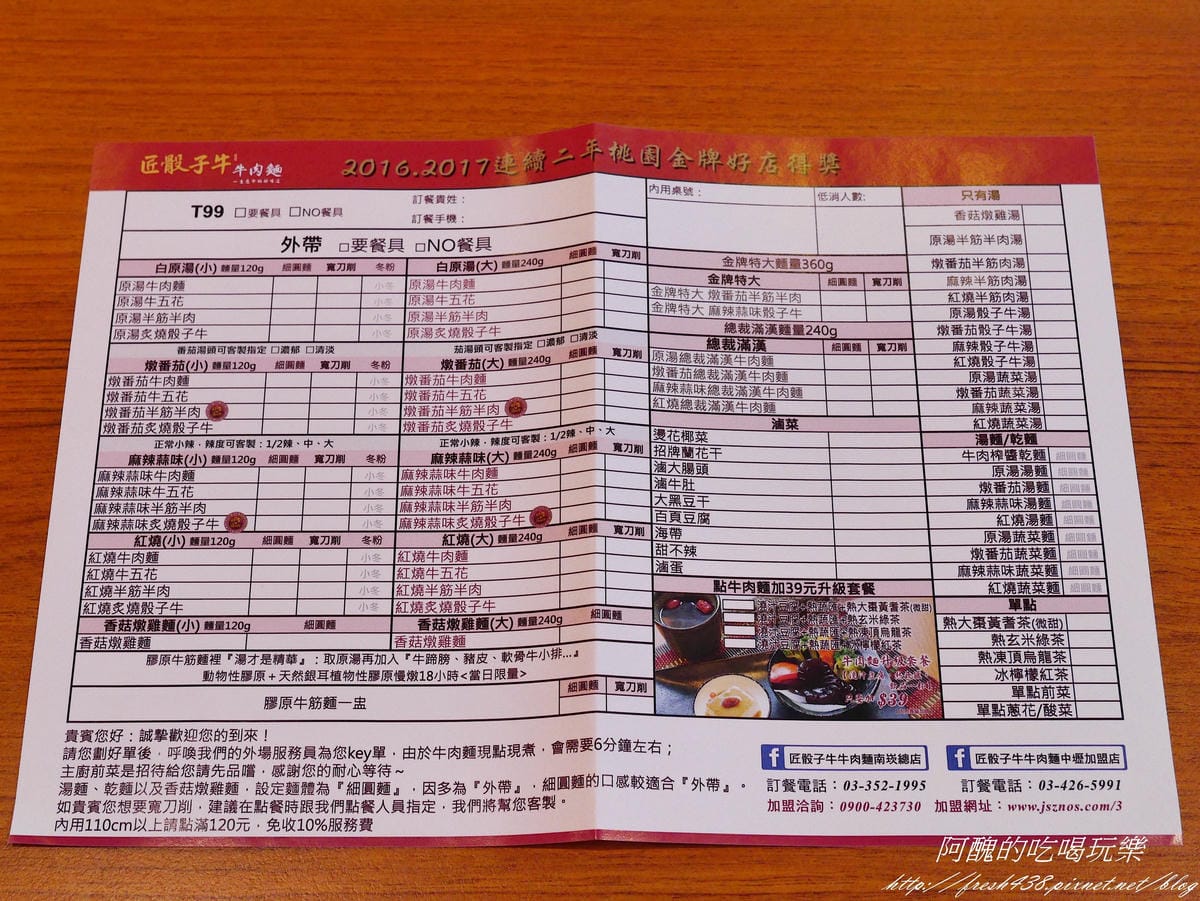 匠骰子牛 牛肉麵
2016.2017連續二年桃園金牌好店得獎
T99 □要餐具 □NO餐具
訂餐貴姓：
訂餐手機：
外帶 □要餐具 □NO餐具
白原湯(小) 麵量120g 細圓麵 寬刀削 冬粉
原湯牛肉麵 小冬
原湯牛五花
原湯半筋半肉 小冬
原湯炙燒骰子牛 小冬
番茄湯頭可客製指定 □濃郁 □清淡
燉番茄(小) 麵量120g 細圓麵 寬刀削 冬粉
燉番茄牛肉麵 小冬
燉番茄牛五花 小冬
燉番茄半筋半肉 小冬
燉番茄炙燒骰子牛 小冬
正常小辣，辣度可客製：1/2辣、中、大
麻辣蒜味(小) 麵量120g 細圓麵 寬刀削 冬粉
麻辣蒜味牛肉麵 小冬
麻辣蒜味牛五花 小冬
麻辣蒜味半筋半肉 小冬
麻辣蒜味炙燒骰子牛 小冬
紅燒(小) 麵量120g 細圓麵 寬刀削 冬粉
紅燒牛肉麵 小冬
紅燒牛五花 小冬
紅燒半筋半肉 小冬
紅燒炙燒骰子牛 小冬
香菇燉雞麵(小) 麵量120g 細圓麵
香菇燉雞麵
白原湯(大) 麵量240g 細圓麵 寬刀削
原湯牛肉麵
原湯牛五花
原湯半筋半肉
原湯炙燒骰子牛
茄湯頭可客製指定 □濃郁 □清淡
燉番茄(大) 麵量240g 細圓麵 寬刀削
燉番茄牛肉麵
燉番茄牛五花
燉番茄半筋半肉
燉番茄炙燒骰子牛
正常小辣，辣度可客製：1/2辣、中、大
麻辣蒜味(大) 麵量240g 細圓麵 寬刀削
麻辣蒜味牛肉麵
麻辣蒜味牛五花
麻辣蒜味半筋半肉
麻辣蒜味炙燒骰子牛
紅燒(大) 麵量240g 細圓麵 寬刀削
紅燒牛肉麵
紅燒牛五花
紅燒半筋半肉
紅燒炙燒骰子牛
香菇燉雞麵(大) 麵量240g 細圓麵
香菇燉雞麵
膠原牛筋麵裡『湯才是精華』：取原湯再加入『牛蹄膀、豬皮、軟骨牛小排...』
動物性膠原＋天然銀耳植物性膠原慢燉18小時<當日限量>
細圓麵 寬刀削
膠原牛筋麵一盅
內用桌號：
低消人數:
金牌特大麵量360g
金牌特大 細圓麵 寬刀削
金牌特大 燉番茄半筋半肉
金牌特大 麻辣蒜味骰子牛
總裁滿漢麵量240g
總裁滿漢 細圓麵 寬刀削
原湯總裁滿漢牛肉麵
燉番茄總裁滿漢牛肉麵
麻辣蒜味總裁滿漢牛肉麵
紅燒總裁滿漢牛肉麵
滷菜
燙花椰菜
招牌蘭花干
滷大腸頭
滷牛肚
大黑豆干
百頁豆腐
海帶
甜不辣
滷蛋
點牛肉麵加39元升級套餐
熱蔬匯+熱大棗黃耆茶(微甜)
熱蔬匯+熱玄米綠茶
熱蔬匯+熱凍頂烏龍茶
熱蔬匯+冰檸檬紅茶
牛肉麵升級套餐
只要加 $39
只有湯
香菇燉雞湯
原湯半筋半肉湯
燉番茄半筋肉湯
麻辣半筋肉湯
紅燒半筋肉湯
原湯骰子牛湯
燉番茄骰子牛湯
麻辣骰子牛湯
紅燒骰子牛湯
原湯蔬菜湯
燉番茄蔬菜湯
麻辣蔬菜湯
紅燒蔬菜湯
湯麵/乾麵
牛肉榨醬乾麵 細圓麵
原湯湯麵 細圓麵
燉番茄湯麵 細圓麵
麻辣蒜味湯麵 細圓麵
紅燒湯麵 細圓麵
原湯蔬菜麵 細圓麵
燉番茄蔬菜麵 細圓麵
麻辣蒜味蔬菜麵 細圓麵
紅燒蔬菜麵 細圓麵
單點
熱大棗黃耆茶(微甜)
熱玄米綠茶
熱凍頂烏龍茶
冰檸檬紅茶
單點前菜
單點蔥花/酸菜
貴賓您好：誠摯歡迎您的到來！
請您劃好單後，呼喚我們的外場服務員為您key單，由於牛肉麵現點現煮，會需要6分鐘左右；
主廚前菜是招待給您請先品嚐，感謝您的耐心等待～
湯麵、乾麵以及香菇燉雞麵，設定麵體為『細圓麵』，因多為『外帶』，細圓麵的口感較適合『外帶』。
如貴賓您想要寬刀削，建議在點餐時跟我們點餐人員指定，我們將幫您客製。
內用110cm以上請點滿120元，免收10%服務費
f 匠骰子牛牛肉麵南崁總店
訂餐電話：03-352-1995
加盟洽詢：0900-423730
f 匠骰子牛牛肉麵中壢加盟店
訂餐電話：03-426-5991
加盟網址：www.jsznos.com/3
阿醜的吃喝玩樂
http://fresh438.pixnet.net/blog